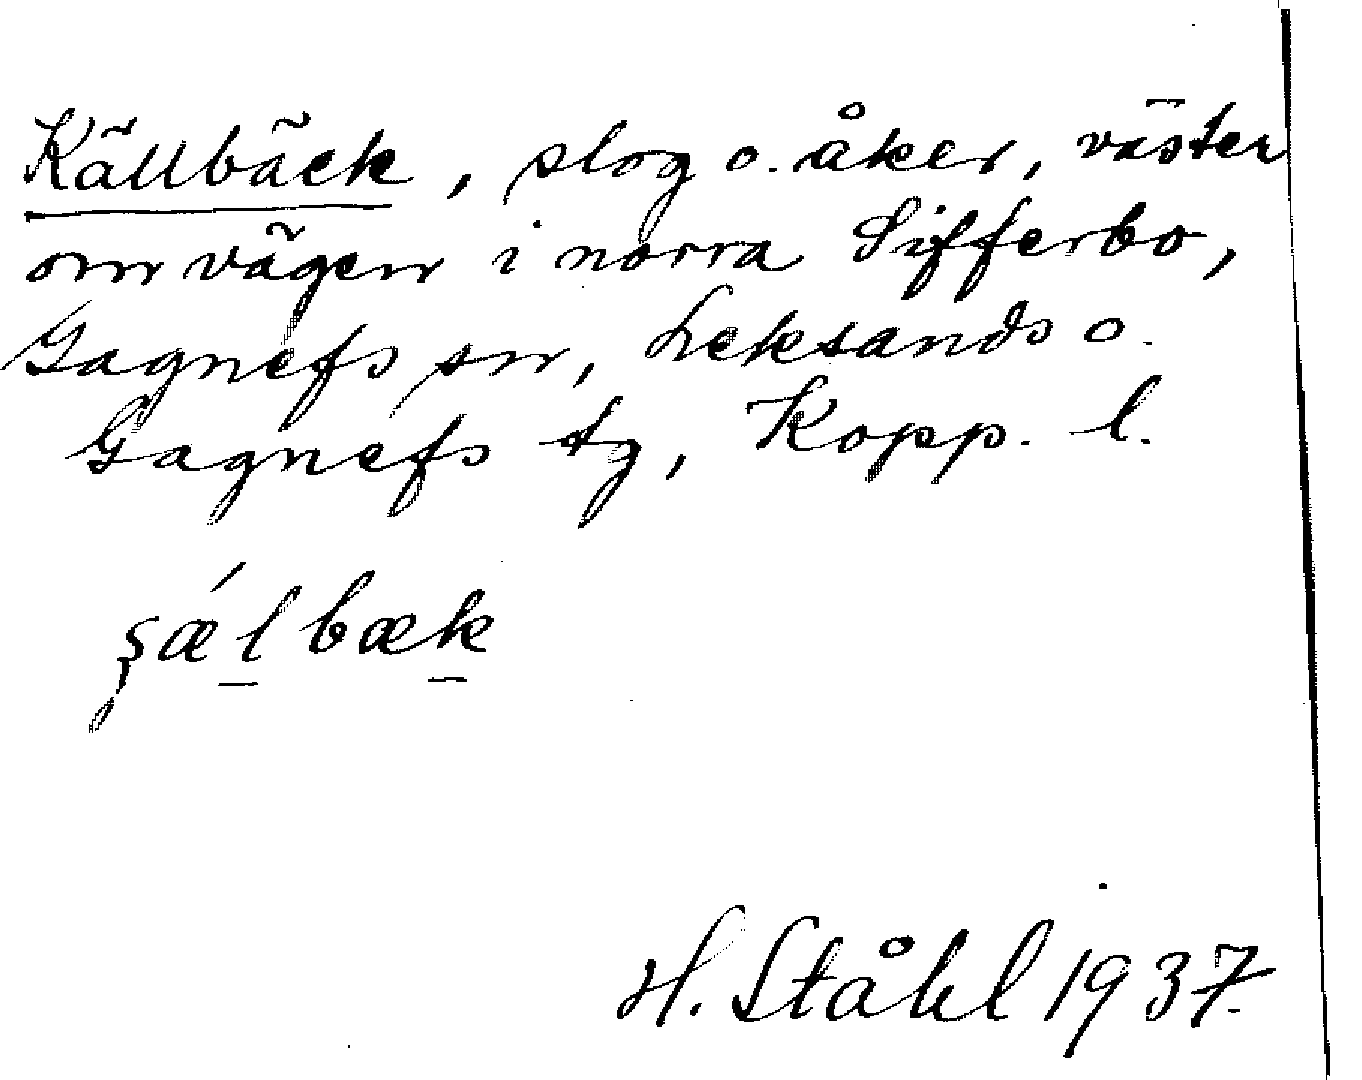 Källbäck, slog o. åker, väster
om vägen i norra Sifferbo,
Gagnefs sn, Leksands o.
Gagnefs tg, Kopp. l.
şǽl̲bæk̲
H. Ståhl 1937.